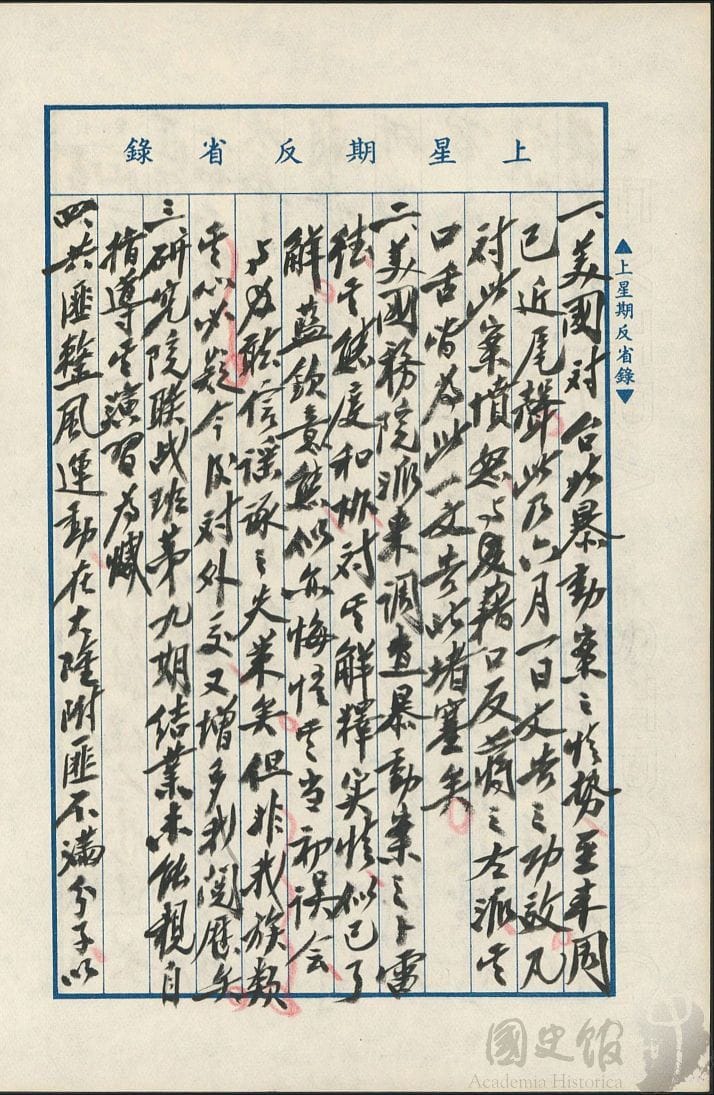 上星期反省錄
▲上星期反省錄▼
一、美國對台北暴動案之情勢至本周
已近尾聲此乃六月一日文告之功效凡
對此案憤怒與及藉口反蔣之左派其
口舌皆為此一文告所堵塞矣
二、美國務院派來調查暴動案之卜雷
德其態度和 對其解釋實情似已了
解藍欽意態似亦悔悟其當初誤會
與為駭信謠諑之失策矣但非我族類
其心必異今後對外交又增多我閱歷矣
三、研究院聯战班第九期結業未能親自
指導其演習為憾
四、共匪整風運動在大陸附匪不滿分子以
國史館
Academia Historica